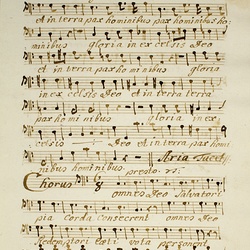 et in terra pax hominibus pax hominibus ho:
minibus gloria in excelsis Deo
et in terra pax hominibus gloria
in excelsis Deo et in terra
pax hominibus gloria in ex
celsis Deo et in terra pax homi
nibus hominibus. Aria Tacet
presto.
Chorus omnes Deo Salvatori
pia corda consecrent omnes Deo
Redemptori vota personent